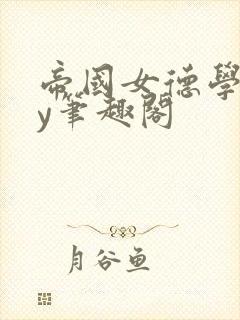 帝國女德學
y筆趣閣
月谷鱼